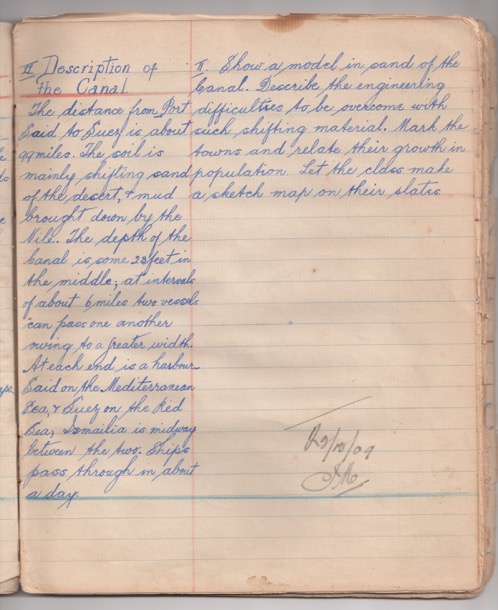 II Description of
the Canal.
The distance from Port
Said to Suez is about
99 miles. The soil is
mainly shifting sand
of the desert, & mud
brought down by the
Nile. The depth of the
Canal is some 28 feet in
the middle; at intervals
of about 6 miles two vessels
can pass one another
owing to a greater width.
At each end is a harbour
Said on the Mediterranean
Sea, & Suez on the Red
Sea, Ismailia is midway
between the two. Ships
pass through in about
a day.
II. Show a model in sand of the
Canal. Describe the engineering
difficulties to be overcome with
such shifting material. Mark the
towns and relate their growth in
population. Let the class make
a sketch map on their slates.
/10/09